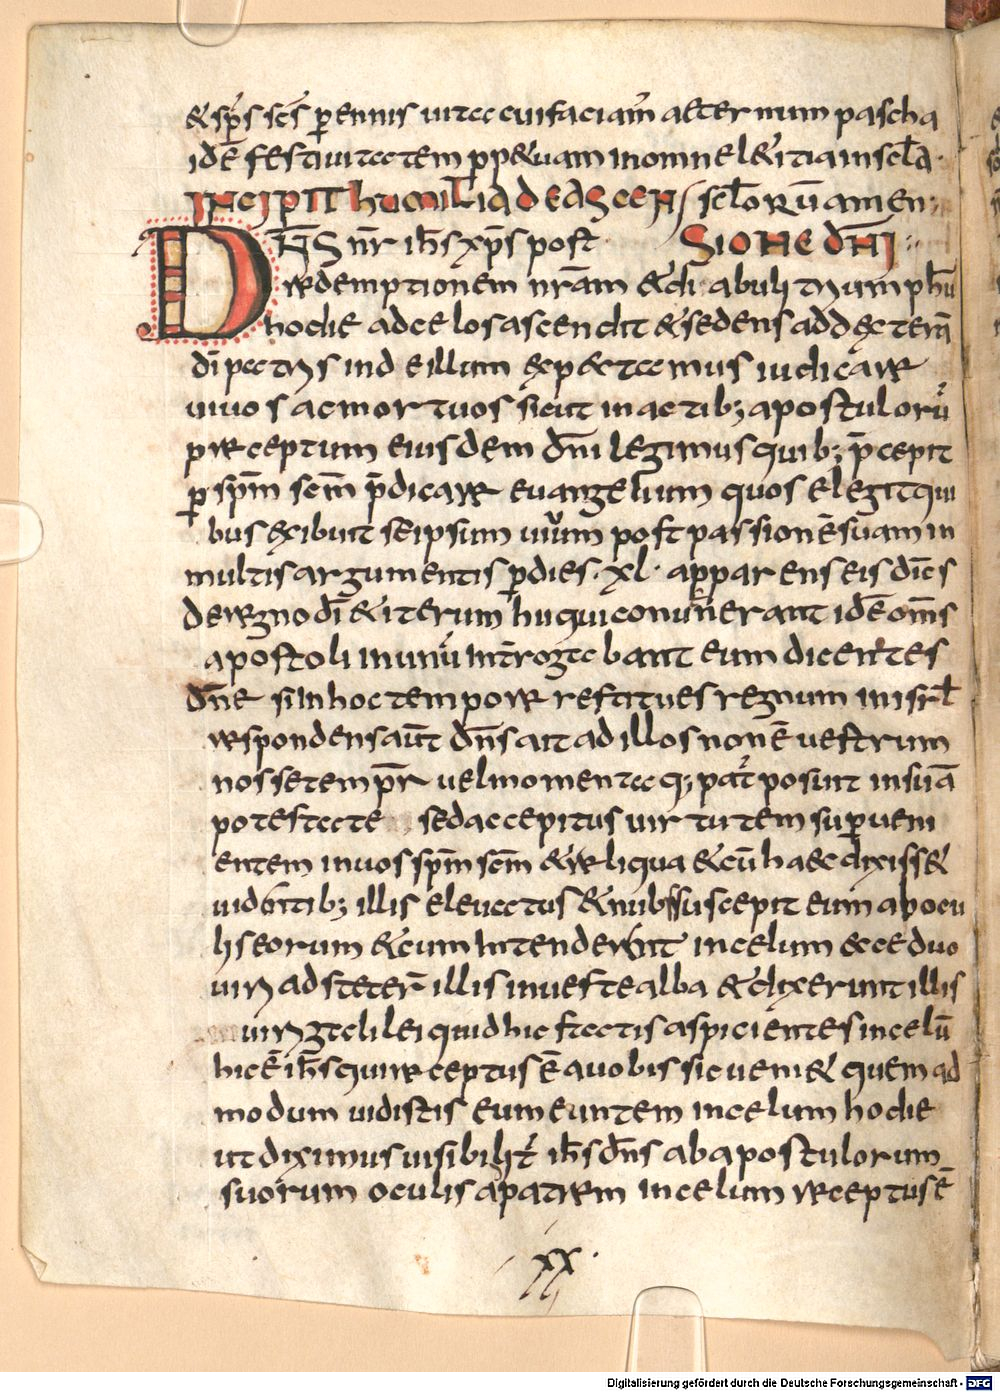 & sp̄s sc̄s p̱ennis uitae cuifaciam̄ aeternum pascha
idē festiuitatem pp&uam inomnel&itiainscl̄a·
INCIPIT humilia de ASCEN scl̄orūamen:
DN̄S nr̄ ih̄s xp̄s post SIONE DN̄I
redemptionem nr̄am &diabuli triumphū
hodie adcelosascendit &sedensaddexterā
dī patris inde illum expectamus iudicare
uiuos acmortuos sicut inactib; apostulorū
preceptum eiusdem dn̄i legimus quib; p̄cepit
p̱ sp̄m sc̄m p̄dicare euangelium quos elegitqui
bus exibuit seipsum uiuum post passionēsuam in
multis argumentis p̱dies · xl · apparens eis dīcs
deregno dī & iterum hii quiconuen̄erant idē om̄s
apostoli inunū Introgabant eum dicentes
dn̄e siinhoc tempore restitues regnum in isrl̄
respondensaūt dn̄s ait ad illos nonē uestrum
nossetempr̄ uelmomenta q; pat̄ posuit insuā
potestate sedaccepitus uirtutem sup̱ueni
entem inuos sp̄m sc̄m & reliqua & cū haec dixiss&
uidentib; illis eleuatus & nubs suscepit eum abocu
lis eorum & cum Intenderent incelum ecce duo
uiri adsteter̄ illis inuestealba & dixerunt illis
uiri galilei quid hic statis aspicientes incelū
hic ē ih̄s quireceptus ē auobis sic ueni& quem ad
modum uidistis eum euntem incelum hodie
ut diximus uisibilit̄ ih̄s dn̄s ab apostulorum
suorum oculis apatrem incelum receptus ē
xx
Digitalisierung gefördert durch die Deutsche Forschungsgemeinschaft - DFG